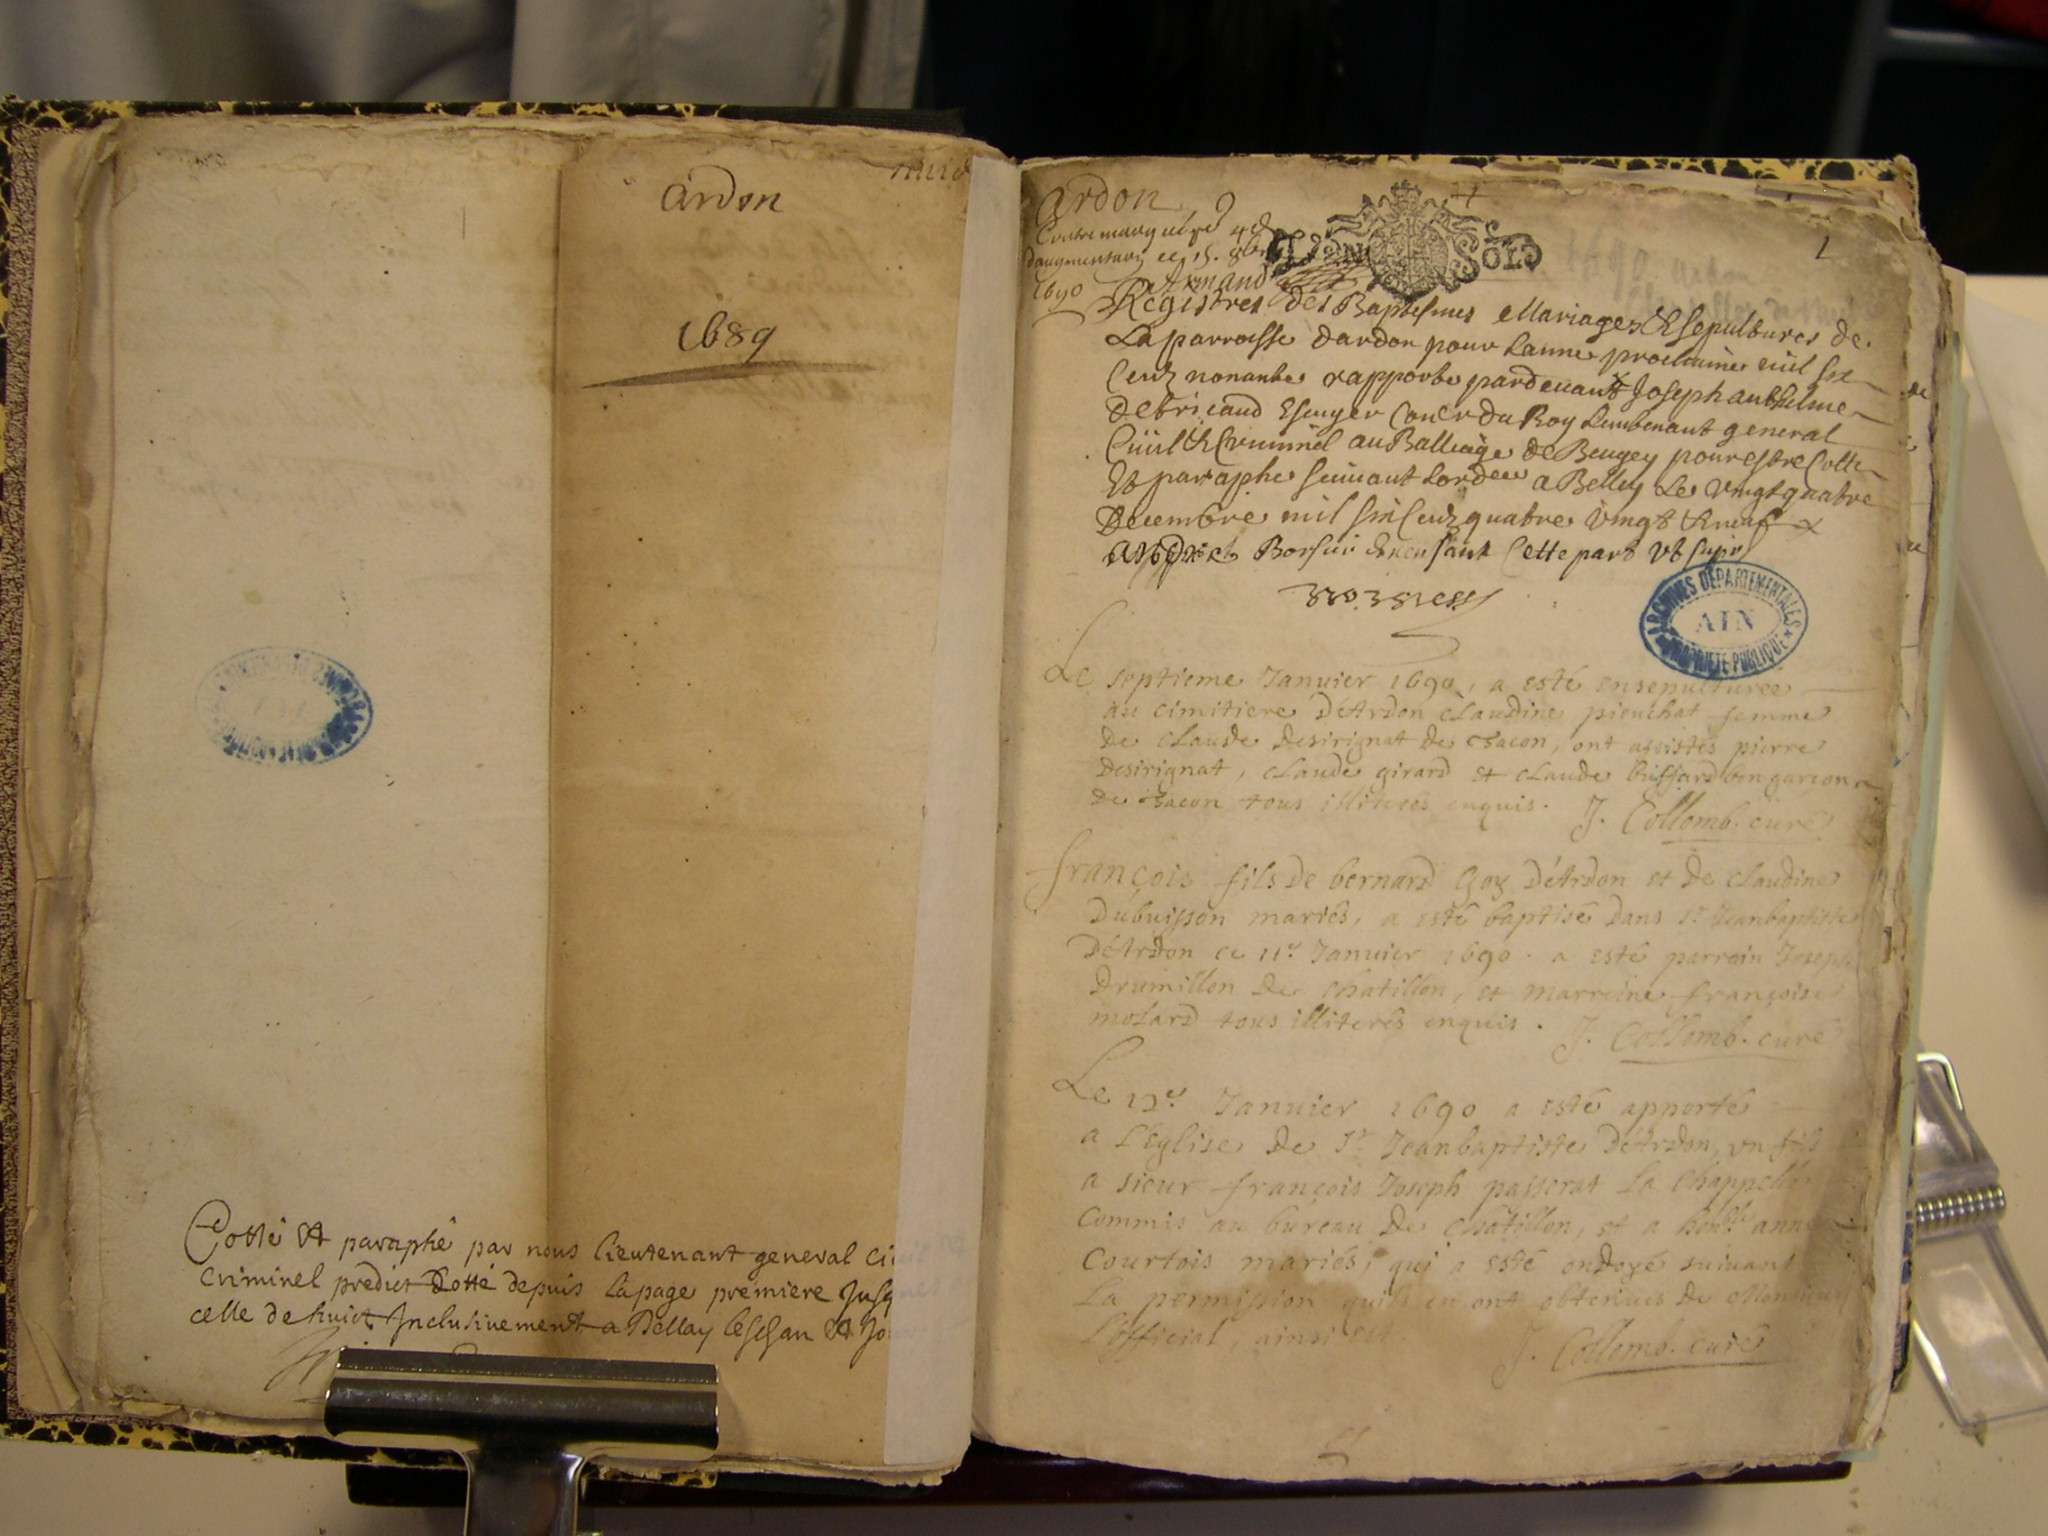 Ardon
1689
Cotté et paraphé par nous lieutenant general ci
criminel predict Cotté depuis la page premiere Jusq
celle de huict Inclusivement a Bellay les jan et jo
Ardon
1690
Armand
1
Registres des Baptesmes Mariages & sepultures de
La parroisse dardon pour Lannee prochaine mil six
Centz nonante rapporte pardevant Joseph anthelme
De bricaud Escuyer Coner du Roy Lieutenant general
Civil & Criminel au Balliage de Beugey pour estre Cotte
Et paraphe suivant Lordce a Belley Le vingt quatre
Decembre mil six centz quatre vingt & neuf
Cette part ut supr
ARCHIVES DÉPARTEMENTALES
AIN
PROPRIÉTÉ PUBLIQUE
Le septieme Janvier 1690, a esté ensepulturée
au cimitiere d'Ardon claudine pieuchat femme
de claude desirignat de chacon, ont assistés pierre
desirignat, claude girard et claude buffard bon garcon
de chacon tous illiterés enquis. J. Collomb. curé
françois fils de bernard Goy d'Ardon et de claudine
Dubuisson mariés, a esté baptisé dans St Jeanbaptiste
d'Ardon ce 11e Janvier 1690. a esté parrain Joseph
Drumillon de chatillon, et marreine françoise
molard tous illiterés enquis. J. Collomb. curé
Le 12e Janvier 1690 a esté apporté
a L'Eglise de St Jeanbaptiste d'Ardon, un fils
a sieur françois Joseph passerat La Chappelle
commis au bureau de chatillon, et a honle anne
Courtois mariés, qui a esté ondoyé suivant
La permission quils en ont obtenues de Monsieur
L'official, ainsi est J. Collomb. curé